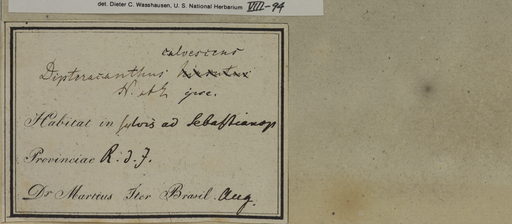 det. Dieter C. Wasshausen, U. S. National Herbarium VIII-94
calvescens
Dipteracanthus hirsutus
N. et E. ipse.
Habitat in sylvis ad Sebastianop
Provinciae R. d. J.
Dr Martius Iter Brasil. Aug.